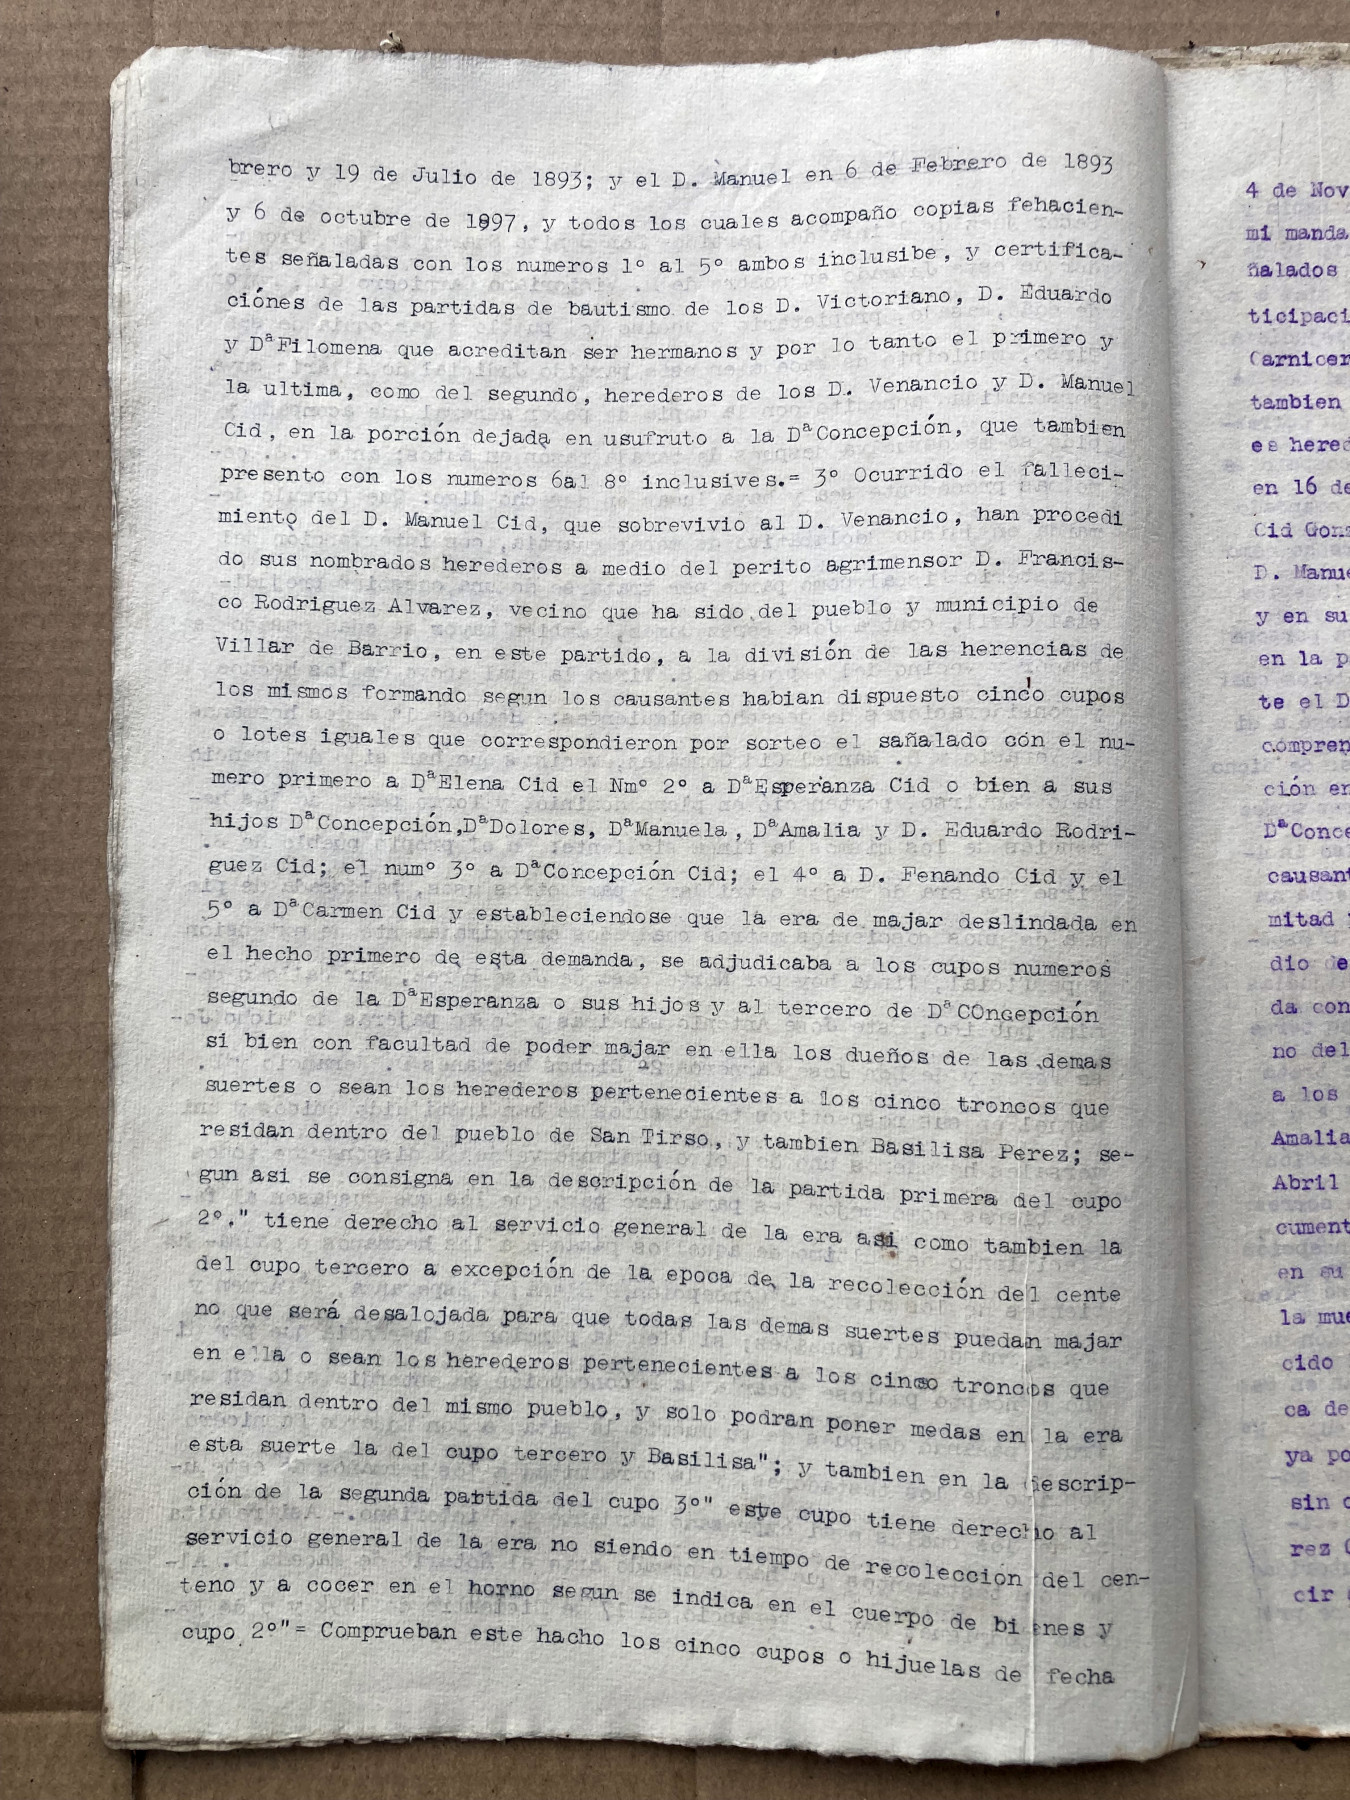 brero y 19 de Julio de 1893; y el D. Manuel en 6 de Febrero de 1893
y 6 de octubre de 1897, y todos los cuales acompaño copias fehacien-
tes señaladas con los numeros 1º al 5º ambos inclusibe, y certifica-
ciónes de las partidas de bautismo de los D. Victoriano, D. Eduardo
y DªFilomena que acreditan ser hermanos y por lo tanto el primero y
la ultima, como del segundo, herederos de los D. Venancio y D. Manuel
Cid, en la porción dejada en usufruto a la DªConcepción, que tambien
presento con los numeros 6al 8º inclusives.= 3º Ocurrido el falleci-
miento del D. Manuel Cid, que sobrevivio al D. Venancio, han procedi
do sus nombrados herederos a medio del perito agrimensor D. Francis-
co Rodriguez Alvarez, vecino que ha sido del pueblo y municipio de
Villar de Barrio, en este partido, a la división de las herencias de
los mismos formando segun los causantes habian dispuesto cinco cupos
o lotes iguales que correspondieron por sorteo el sañalado cón el nu-
mero primero a DªElena Cid el Nmº 2º a DªEsperanza Cid o bien a sus
hijos DªConcepción,DªDolores, DªManuela, DªAmalia y D. Eduardo Rodri-
guez Cid; el numº 3º a DªConcepción Cid; el 4º a D. Fenando Cid y el
5º a DªCarmen Cid y estableciendose que la era de majar deslindada en
el hecho primero de esta demanda, se adjudicaba a los cupos numeros
segundo de la DªEsperanza o sus hijos y al tercero de DªCOncepción
si bien con facultad de poder majar en ella los dueños de las demas
suertes o sean los herederos pertenecientes a los cinco troncos que
residan dentro del pueblo de San Tirso, y tambien Basilisa Perez; se-
gun asi se consigna en la descripción de la partida primera del cupo
2º." tiene derecho al servicio general de la era asi como tambien la
del cupo tercero a excepción de la epoca de la recolección del cente
no que será desalojada para que todas las demas suertes puedan majar
en ella o sean los herederos pertenecientes a los cinco troncos que
residan dentro del mismo pueblo, y solo podran poner medas en la era
esta suerte la del cupo tercero y Basilisa"; y tambien en la descrip-
ción de la segunda partida del cupo 3º" este cupo tiene derecho al
servicio general de la era no siendo en tiempo de recolección del cen-
teno y a cocer en el horno segun se indica en el cuerpo de bienes y
cupo 2º"= Comprueban este hacho los cinco cupos o hijuelas de fecha
4 de Nov
mi manda
ñalados
ticipaci
Carnicer
tambien
es hered
en 16 de
Cid Gonz
D. Manue
y en su
en la p
te el D
compren
ción en
DªConce
causant
mitad
dio de
da con
no del
a los
Amalia
Abril
cument
en su
la mue
cido
ca de
ya po
sin
rez
cir